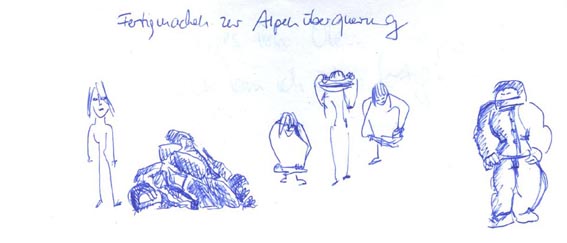 Fertigmachen zur Alpenüberquerung